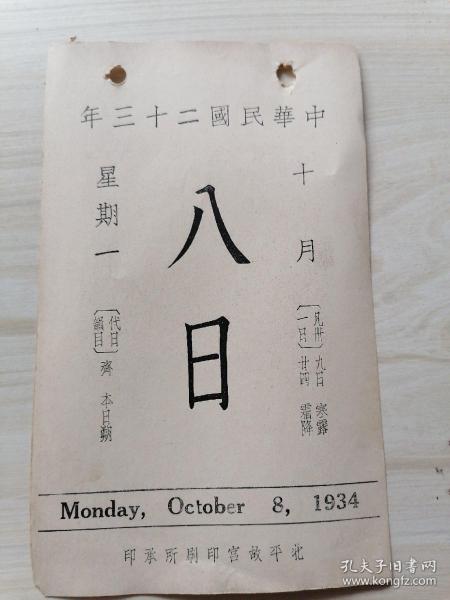 中華民國二十三年
十月
〔見卅一日〕
九日 寒露
廿四 霜降
八日
星期一
〔代日韻目〕
齊 本日朔
Monday, October 8, 1934
北平故宮印刷所承印
孔夫子旧书网
www.kongfz.com